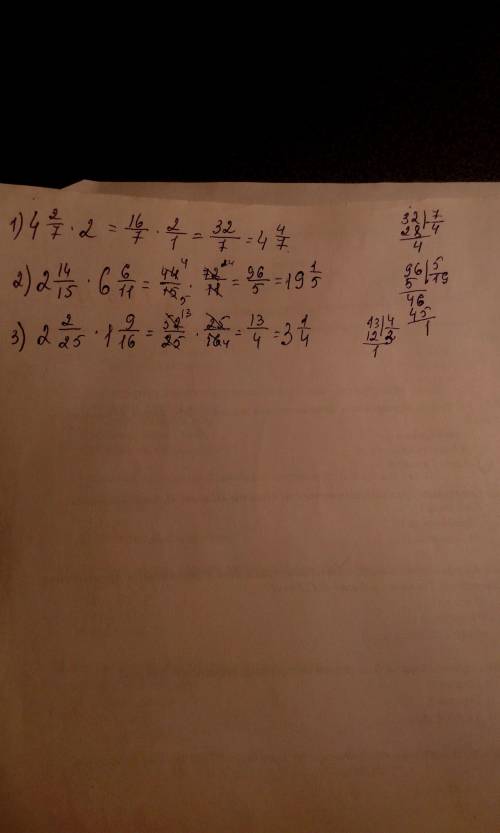 1) 4 2/7 · 2 = 16/7 · 2/1 = 32/7 = 4 4/7
2) 2 14/15 · 6 6/11 = 44 4/15 5 · 72 24/11 = 96/5 = 19 1/5
3) 2 2/25 · 1 9/16 = 52 13/25 · 25/16 4 = 13/4 = 3 1/4
32 | 7
28 | 4
4
96 | 5
5 | 19
46
45
1
13 | 4
12 | 3
1